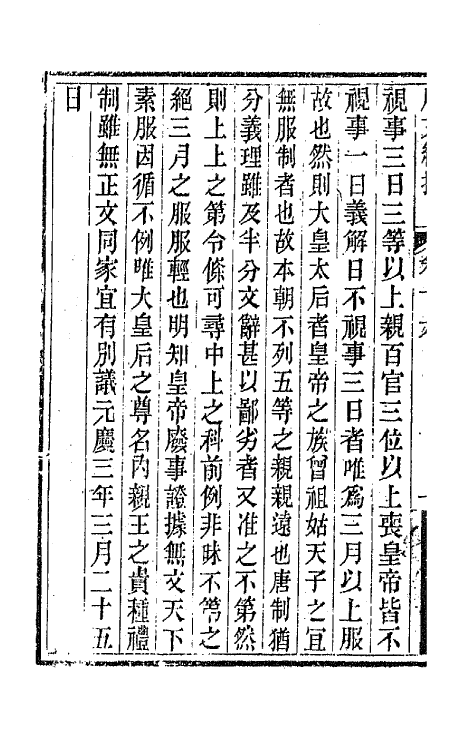 視事三日三等以上親百官三位以上喪皇帝皆不
視事一日義解曰不視事三日者唯爲三月以上服
故也然則大皇太后者皇帝之族曾祖姑天子之宜
無服制者也故本朝不列五等之親親遠也唐制猶
分義理雖及半分文辭甚以鄙劣者又准之不第然
則上上之第令條可尋中上之科前例非昧不等之
絕三月之服服輕也明知皇帝廢事證據無文天下
素服因循不例唯大皇后之尊名內親王之貴種禮
制雖無正文同家宜有別議元慶三年三月二十五
日